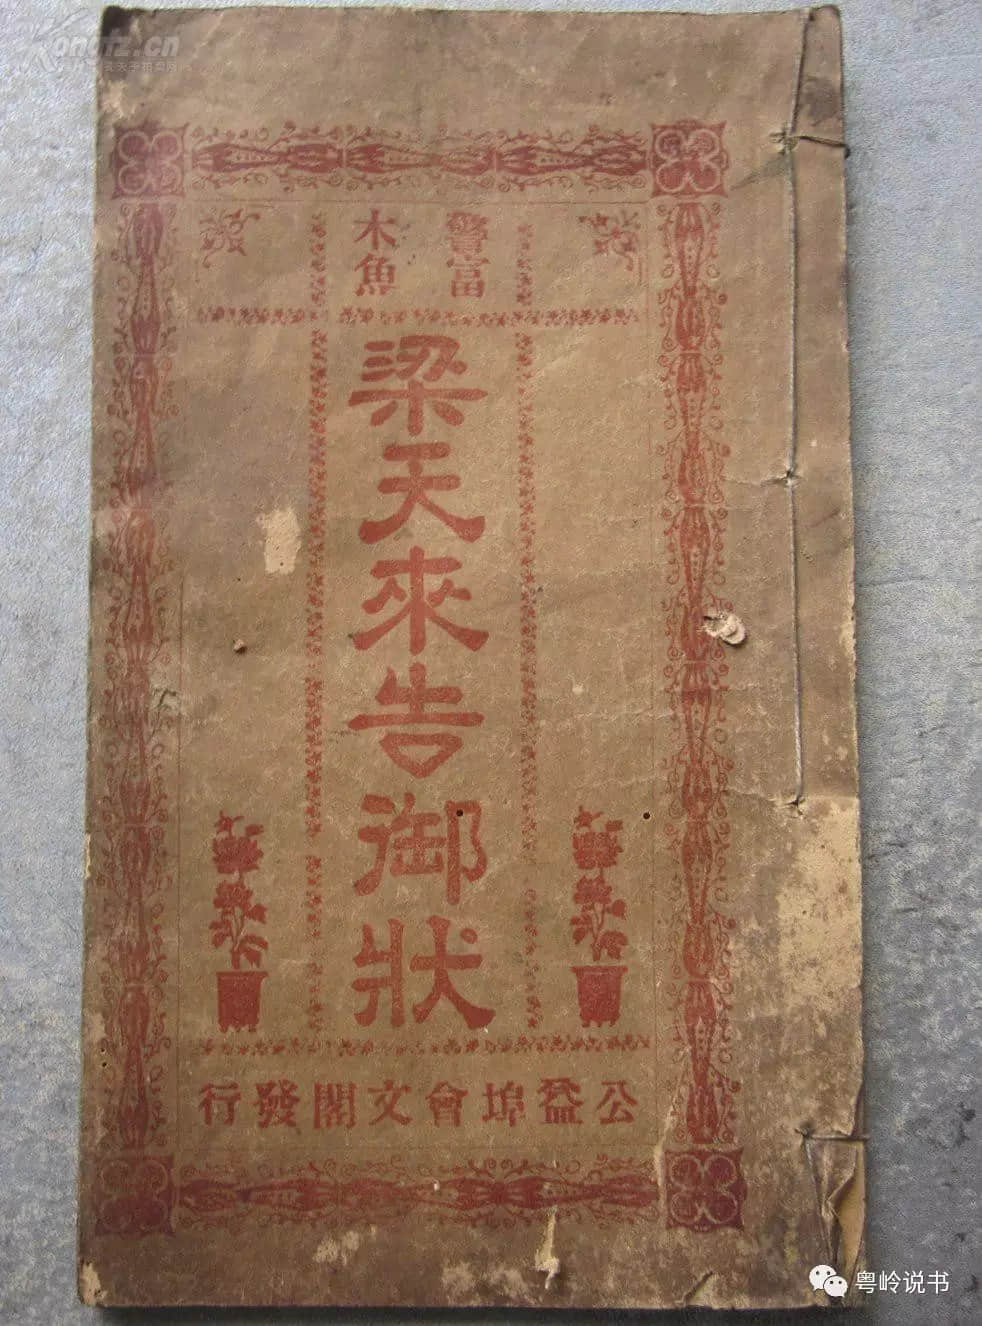 Kongfz.cn
警富
木魚
梁天來告御狀
公益埠會文閣發行
粤岭说书